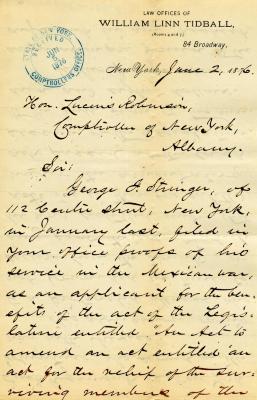 LAW OFFICES OF
WILLIAM LINN TIDBALL,
(Rooms 4 and 7)
84 Broadway,
New York, June 2, 1876.
NEW YORK
RECEIVED
JUN
1876
COMPTROLLER'S OFFICE
Hon. Lucius Robinson,
Comptroller of New York,
Albany.
Sir:
George F. Stringer, of
112 Centre street, New York,
in January last, filed in
your office proofs of his
service in the Mexican war,
as an applicant for the ben-
efits of the act of the Legis-
lature entitled "An Act to
amend an act entitled 'an
act for the relief of the sur-
viving members of the